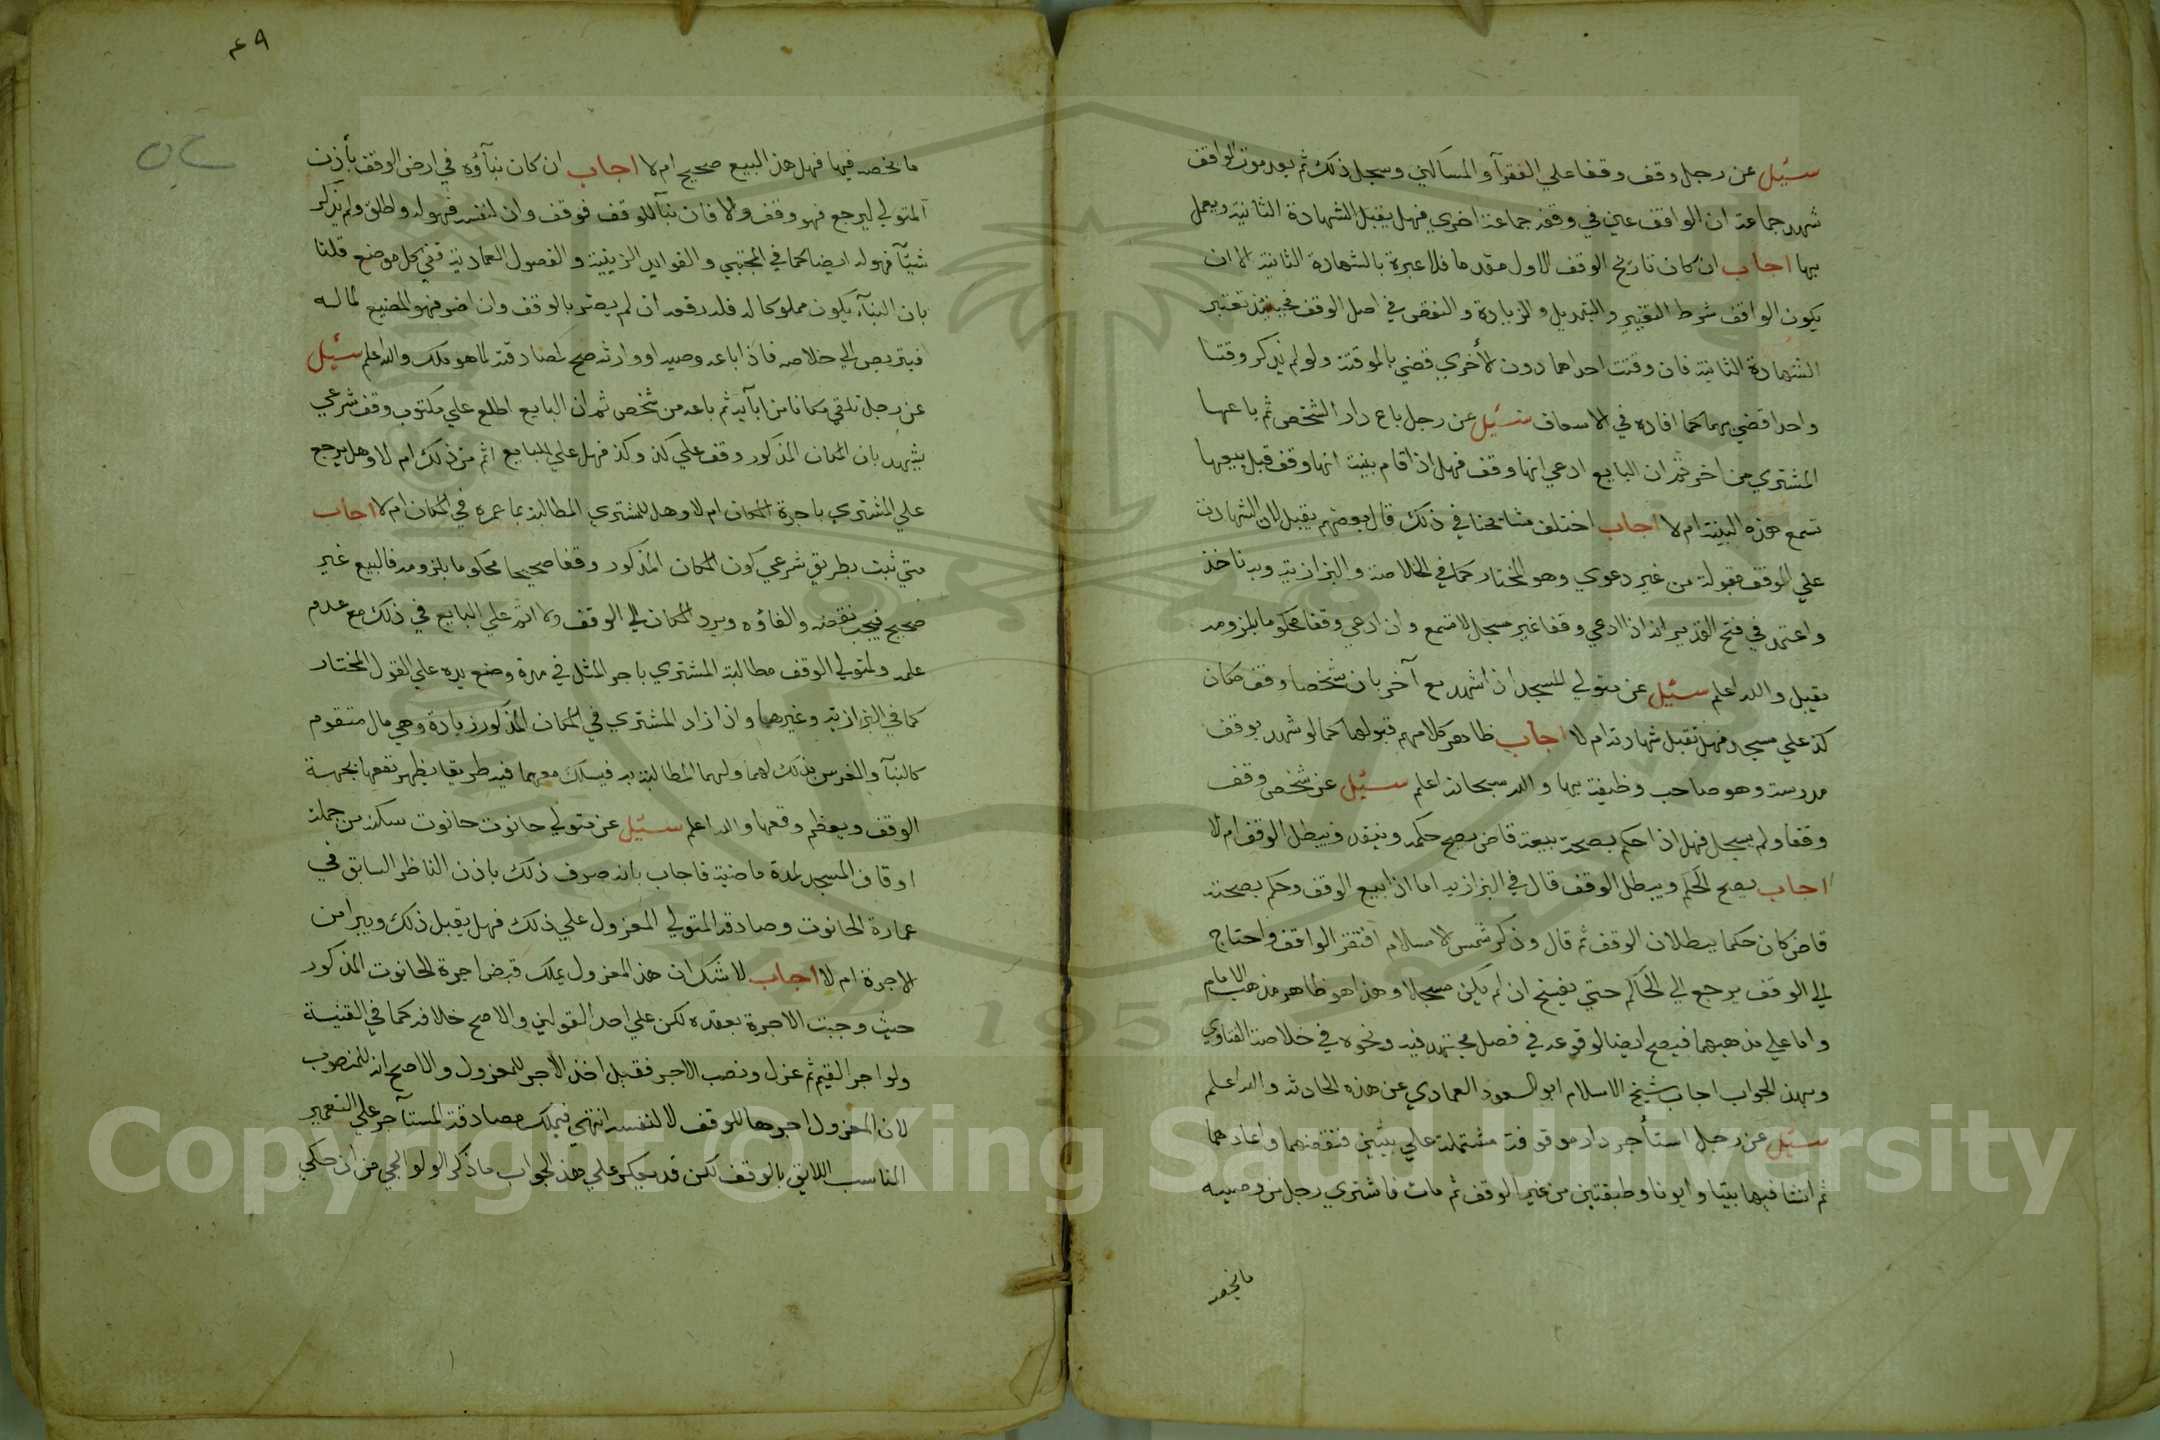 سئيل عن رجل وقف وقفا علي الفقرآ والمساكين وسجل ذلك ثم بعد موت الواقف
شهد جماعة ان الواقف عين في وقفه جماعة اخري فهل يقبل الشهادة الثانية ويعمل
بها اجاب ان كان تاريخ الوقف الاول مقدما فلا عبرة بالشهادة الثانية الا ان
يكون الواقف شرط التغيير والتبديل والزيادة والنقص في اصل الوقف فحينئذ تعتبر
الشهادة الثانية فان وقتت احداهما دون الأخري قضي بالموقتة ولو لم يذكر وقتا
واحدا قضي بهما كما افاده في الاسعاف سئيل عن رجل باع دار الشخص ثم باعها
المشتري من اخر ثم ان البايع ادعي انها وقف فهل اذا قام بينة انها وقف قبل بيعها
تسمع هذه البينة ام لا اجاب اختلف مشايخنا في ذلك قال بعضهم يقبل لان الشهادة
علي الوقف مقبولة من غير دعوي وهو المختار كما في الخلاصة والبزازية وبه ناخذ
واعتمد في فتح القدير انه اذا ادعي وقفا غير مسجل لا تسمع وان ادعي وقفا محكوما بلزومه
يقبل والله اعلم سئيل عن متولي المسجد اذا شهد مع آخر بان شخصا وقف مكان
كذ علي مسجد فهل تقبل شهادته ام لا اجاب ظاهر كلامهم قبولها كما لو شهد بوقف
مدرسة وهو صاحب وظيفة بها والله سبحانه اعلم سئيل عن شخص وقف
وقفا ولم يسجل فهل اذا حكم بصحة بيعه قاض يصح حكمه وينفد ويبطل الوقف ام لا
اجاب يصح الحكم ويبطل الوقف قال في البزازيه اما اذا بيع الوقف وحكم بصحته
قاض كان حكما ببطلان الوقف ثم قال وذكر شمس الاسلام افتقر الواقف واحتاج
الي الوقف يرجع الي الحاكم حتي يفسخ ان لم يكن مسجلا وهذا هو ظاهر مذهب الامام
واما علي مذهبهما فيصح ايضا لوقوعه في فصل مجتهد فيه ونحوه في خلاصة الفتاوي
وبهذ الجواب اجاب شيخ الاسلام ابو السعود العمادي عن هذه الحادثه والله اعلم
سئيل عن رجل استأجر دار موقوفة مشتملة علي بيتين فنقضهما واعادهما
ثم انشا فيها بيتا وايونا وطبقتين من غير الوقف ثم مات فاشتري رجل من وصيه
ما يخصه
٤٩
ما يخصه فيها فهل هذ البيع صحيح ام لا اجاب ان كان بنآؤه في ارض الوقف بأذن
المتولي ليرجع فهو وقف والا فان بنآ للوقف فوقف وان لنفسه فهو له واطلق ولم يذكر
شيئا فهو له ايضا كما في المجتبي والفوايد الزينية والفصول العمادية ففي كل موضع قلنا
بان البنآء يكون مملوكا له فله رفعه ان لم يضر بالوقف وان اضر فهو المضيع لماله
فيتربص الي خلاصه فاذا باعه وصيه او وارثه صح لمصادقته لما هو ملك والله اعلم سئيل
عن رجل تلقي مكانا من ابآيه ثم باعه من شخص ثم ان البايع اطلع علي مكتوب وقف شرعي
يشهد بان المكان المذكور وقف علي كذ وكذ فهل علي البايع اثم من ذلك ام لا وهل يرجع
علي المشتري باجرة المكان ام لا وهل للمشتري المطالبة بما عمره في المكان ام لا اجاب
متي ثبت بطريق شرعي كون المكان المذكور وقفا صحيحا محكوما بلزومه فالبيع غير
صحيح فيجب نقضه والغاؤه ويرد المكان الي الوقف ولا اثم علي البايع في ذلك مع عدم
علمه ولمتولي الوقف مطالبة المشتري باجر المثل في مدة وضع يده علي القول المختار
كما في البزازيه وغيرها واذا زاد المشتري في المكان المذكور زيادة وهي مال متقوم
كالبنآ والغرس فذلك لهما ولهما المطالبة به فيسلك معهما فيه طريقا يظهر نفعها بجهة
الوقف ويعظم وقعها والله اعلم سئيل عن متولي حانوت حانوت سكنه من جملة
اوقاف المسجد لمدة ماضية فاجاب بانه صرف ذلك باذن الناظر السابق في
عمارة الحانوت وصادقه المتولي المعزول علي ذلك فهل يقبل ذلك ويبرا من
الاجرة ام لا اجاب لا شك ان هذ المعزول يملك قبض اجرة الحانوت المذكور
حيث وجبت الاجرة بعقده لكن علي احد القولين والاصح خلافه كما في القنية
ولو اجر القيم ثم عزل ونصب الاجر فقبل اخذ الاجر للمعزول والاصح انه للمنصوب
لان المعزول اجرها للوقف لا لنفسه انتهي فيملك مصادقة المستآجر علي التعمير
المناسب اللايق بالوقف لكن قد يعكر علي هذ الجواب ما ذكر الولوالجي من ان حكي
Copyright © King Saud University
1957